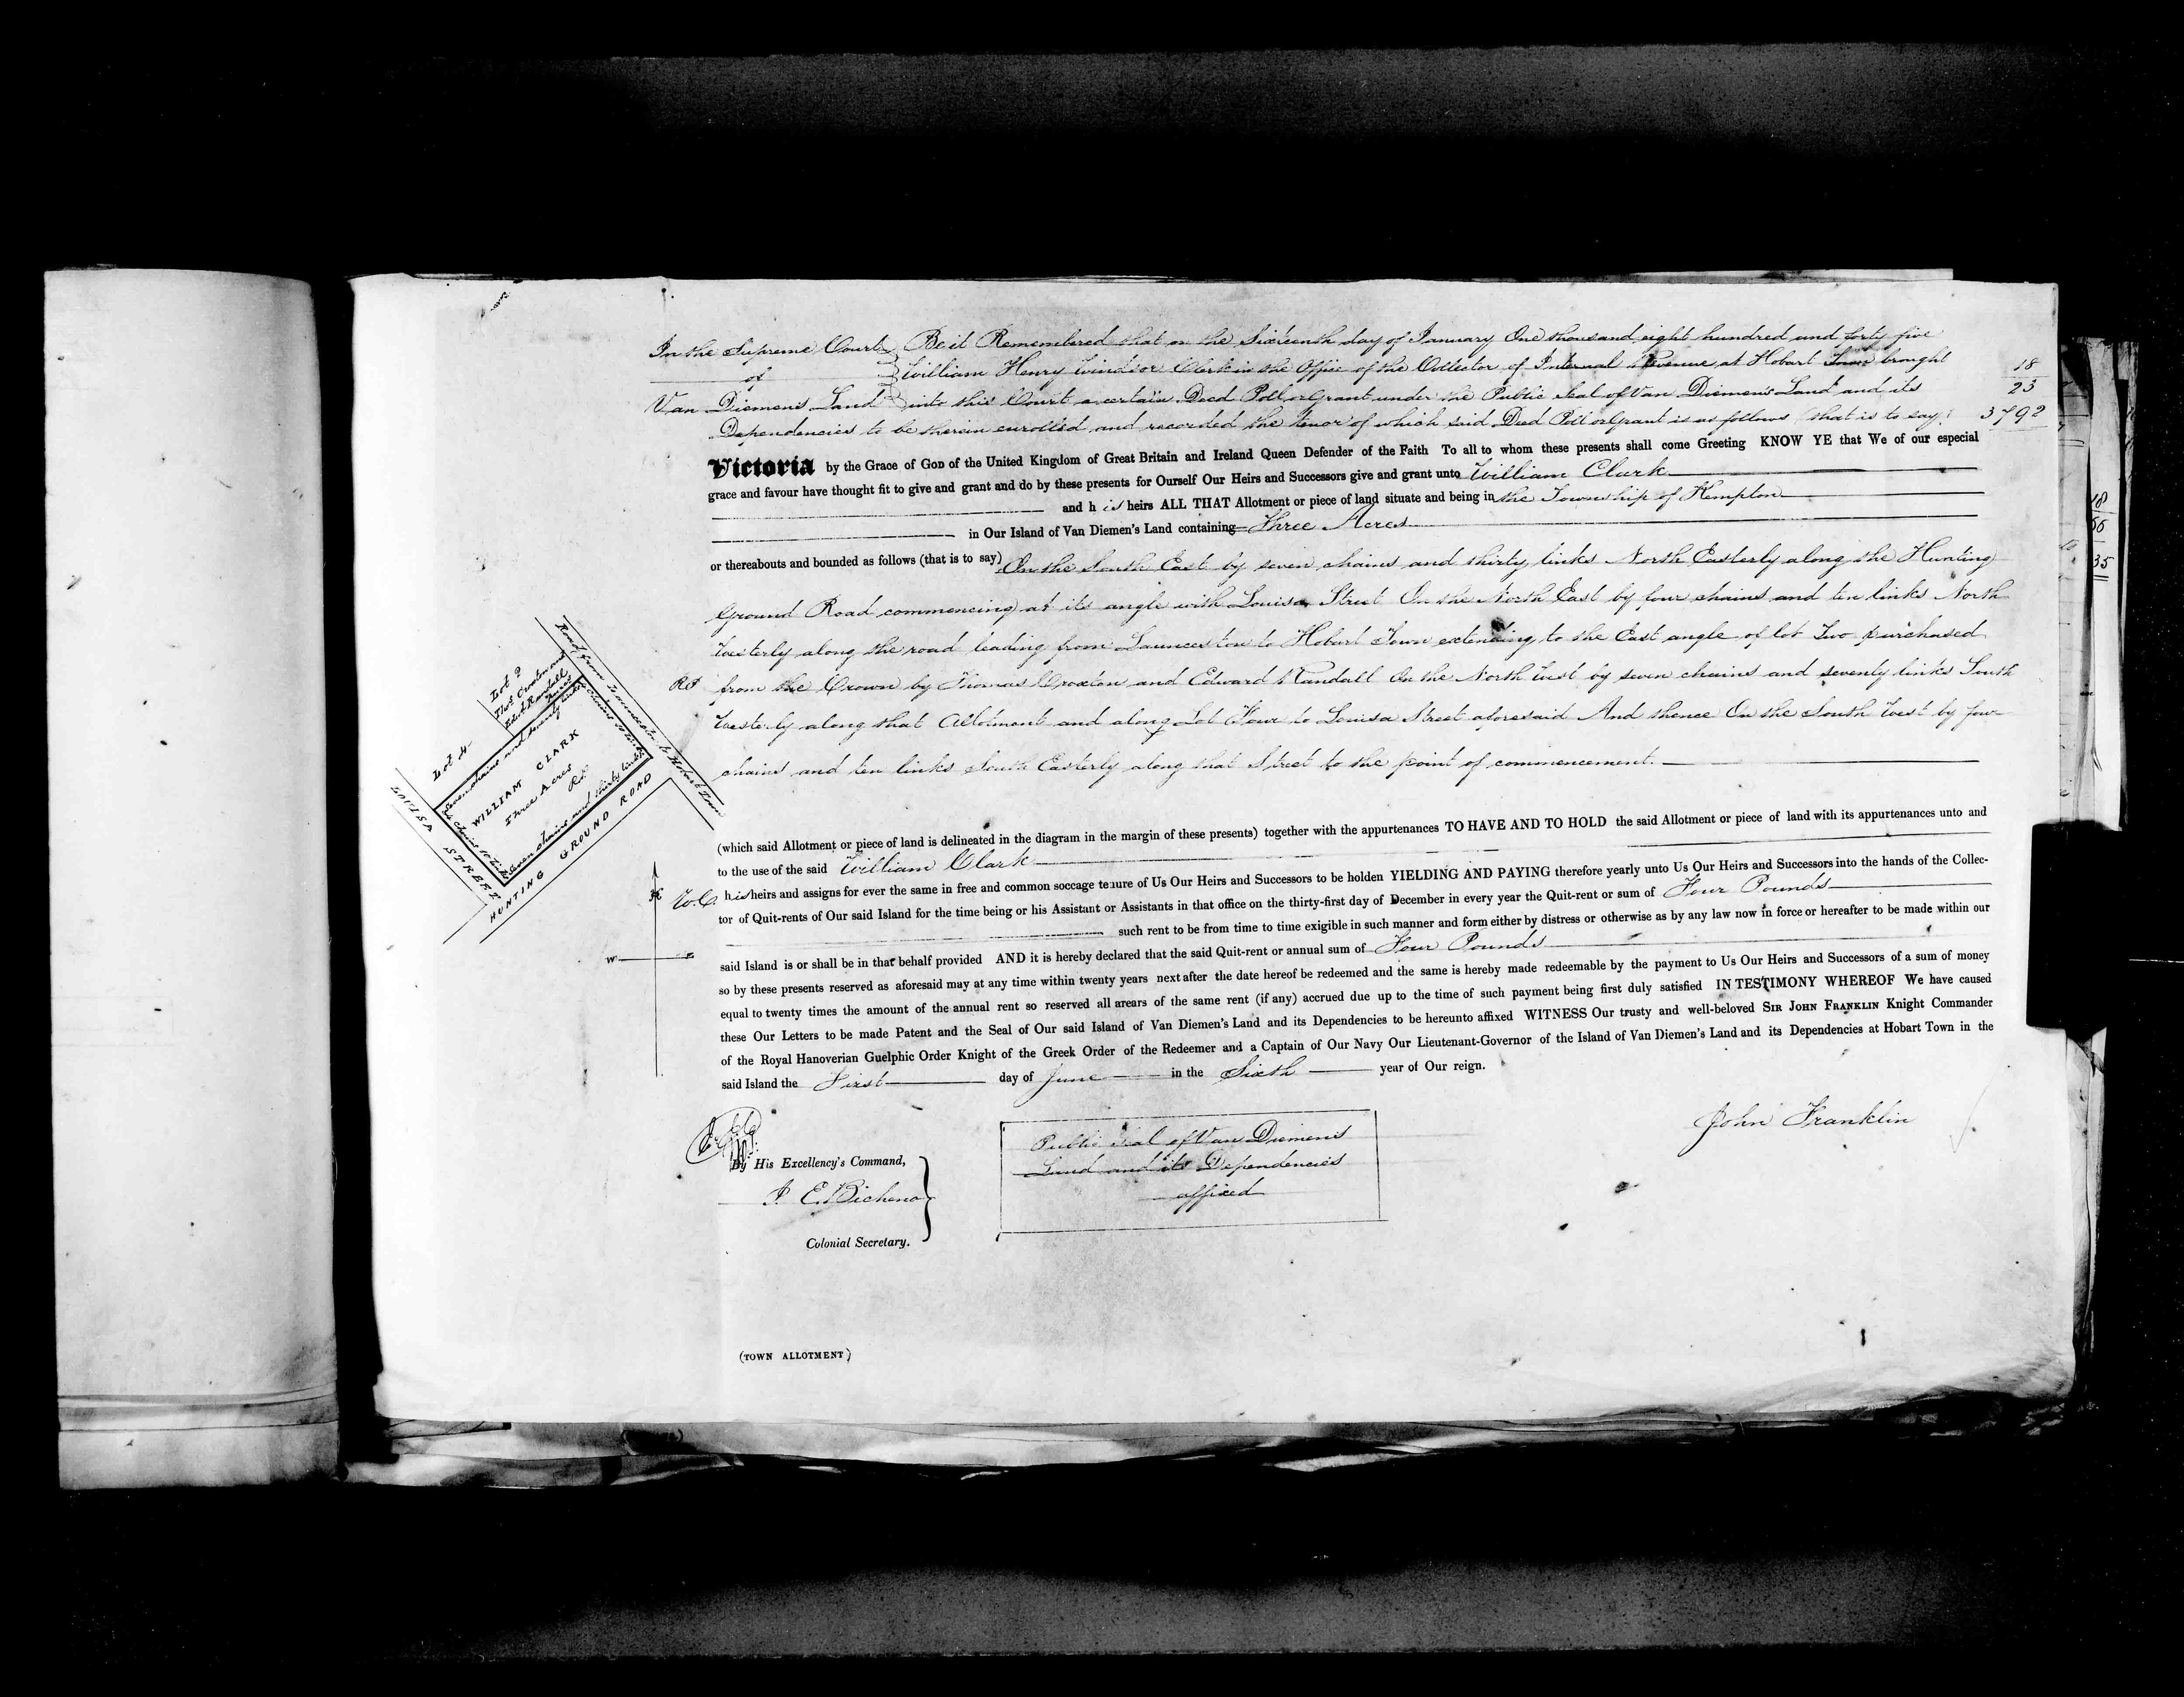 In the Supreme Court
of
Van Diemen's Land
Be it Remembered that on the Sixteenth day of January One thousand eight hundred and forty five
William Henry Windsor Clerk in the Office of the Collector of Internal Revenue at Hobart Town brought
into this Court a certain Deed Poll or Grant under the Public Seal of Van Diemen's Land and its
Dependencies to be therein enrolled and recorded the tenor of which said Deed Poll or Grant is as follows (that is to say)
18
23
3792
Victoria by the Grace of God of the United Kingdom of Great Britain and Ireland Queen Defender of the Faith To all to whom these presents shall come Greeting KNOW YE that We of our especial
grace and favour have thought fit to give and grant and do by these presents for Ourself Our Heirs and Successors give and grant unto William Clark
and his heirs ALL THAT Allotment or piece of land situate and being in the Township of Kempton
in Our Island of Van Diemen's Land containing Three Acres
or thereabouts and bounded as follows (that is to say) On the South East by seven chains and thirty links North Easterly along the Hunting
Ground Road commencing at its angle with Louisa Street On the North East by four chains and ten links North
Westerly along the road leading from Launceston to Hobart Town extending to the East angle of lot Two purchased
RP from the Crown by Thomas Croxton and Edward Randall On the North West by seven chains and seventy links South
Westerly along that Allotment and along Lot Four to Louisa Street aforesaid And thence On the South West by four
chains and ten links South Easterly along that Street to the point of commencement.
Lot 2
Thos Croxton and
Edwd Randall
Lot 4
Road from Launceston to Hobart Town
Seven chains and seventy links
4 chains 10 links
WILLIAM CLARK
Three Acres
4 chains 10 links
Seven chains and thirty links
LOUISA STREET
HUNTING GROUND ROAD
W
(which said Allotment or piece of land is delineated in the diagram in the margin of these presents) together with the appurtenances TO HAVE AND TO HOLD the said Allotment or piece of land with its appurtenances unto and
to the use of the said William Clark
W.C. his heirs and assigns for ever the same in free and common soccage tenure of Us Our Heirs and Successors to be holden YIELDING AND PAYING therefore yearly unto Us Our Heirs and Successors into the hands of the Collec-
tor of Quit-rents of Our said Island for the time being or his Assistant or Assistants in that office on the thirty-first day of December in every year the Quit-rent or sum of Four Pounds
such rent to be from time to time exigible in such manner and form either by distress or otherwise as by any law now in force or hereafter to be made within our
said Island is or shall be in that behalf provided AND it is hereby declared that the said Quit-rent or annual sum of Four Pounds
so by these presents reserved as aforesaid may at any time within twenty years next after the date hereof be redeemed and the same is hereby made redeemable by the payment to Us Our Heirs and Successors of a sum of money
equal to twenty times the amount of the annual rent so reserved all arears of the same rent (if any) accrued due up to the time of such payment being first duly satisfied IN TESTIMONY WHEREOF We have caused
these Our Letters to be made Patent and the Seal of Our said Island of Van Diemen's Land and its Dependencies to be hereunto affixed WITNESS Our trusty and well-beloved SIR JOHN FRANKLIN Knight Commander
of the Royal Hanoverian Guelphic Order Knight of the Greek Order of the Redeemer and a Captain of Our Navy Our Lieutenant-Governor of the Island of Van Diemen's Land and its Dependencies at Hobart Town in the
said Island the First day of June in the Sixth year of Our reign.
John Franklin
By His Excellency's Command,
J E Bicheno
Colonial Secretary.
Public Seal of Van Diemen's
Land and its Dependencies
affixed
(TOWN ALLOTMENT)
18
35